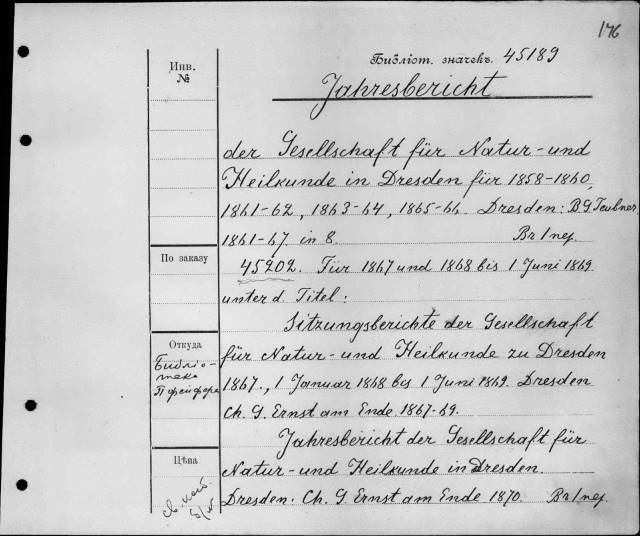 176
Инв. №
Библіот. значекъ. 45189
Jahresbericht
der Gesellschaft für Natur- und
Heilkunde in Dresden für 1858-1860,
1861-62, 1863-64, 1865-66. Dresden: B G Teubner,
1861-67. in 8. Br/пер.
По заказу
45202. Für 1867 und 1868 bis 1 Juni 1869
unter d. Titel:
Sitzungsberichte der Gesellschaft
Откуда
Библіо-
тека
Пфейфера
für Natur- und Heilkunde zu Dresden
1867., 1 Januar 1868 bis 1 Juni 1869. Dresden
Ch. G. Ernst am Ende. 1867-69.
Jahresbericht der Gesellschaft für
Цѣна
Natur- und Heilkunde in Dresden.
Dresden: Ch. G. Ernst am Ende 1870. Br/пер.